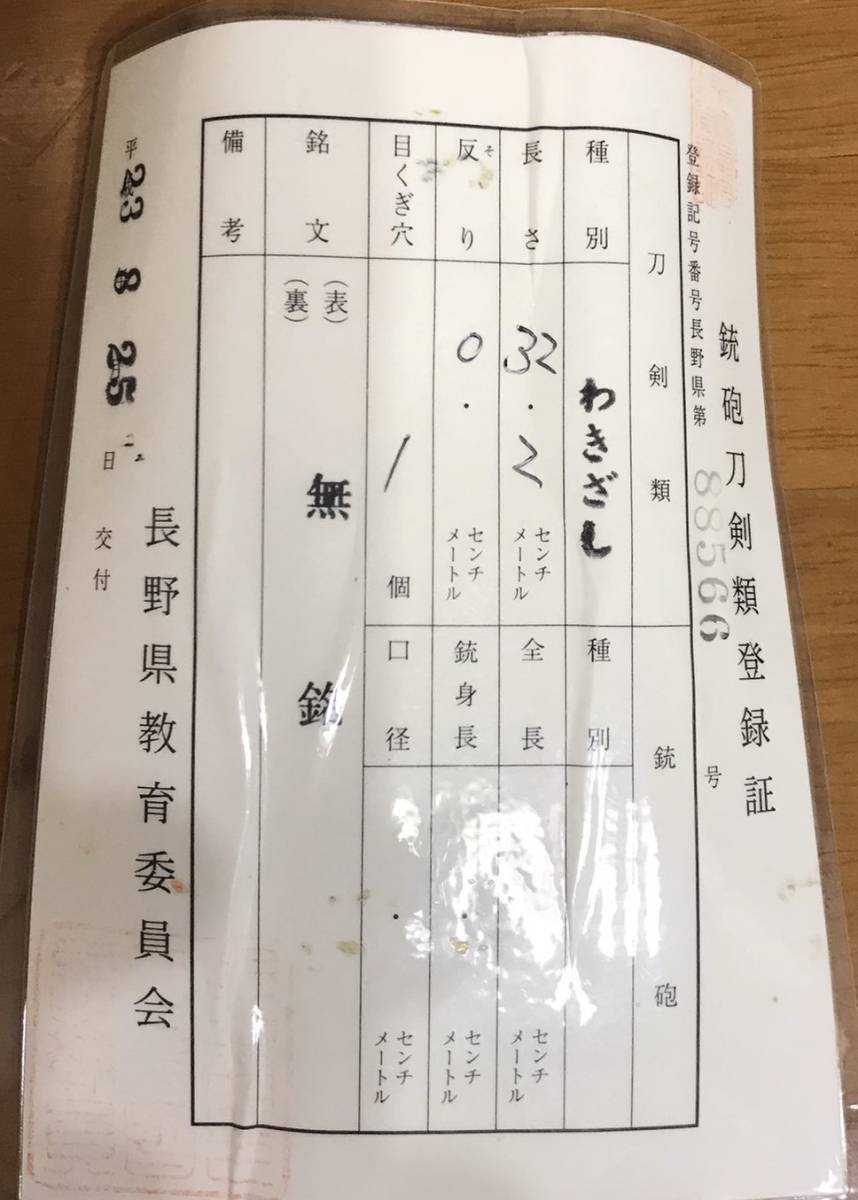 銃砲刀剣類登録証
登録記号番号長野県第 88566 号
刀剣類
銃砲
種別
わきざし
種別
長さ
32.2
センチメートル
全長
センチメートル
反り
そ
0.
センチメートル
銃身長
.
センチメートル
目くぎ穴
1
個
口径
.
センチメートル
銘文
(表)
(裏)
無銘
備考
平 23 8 25 日交付
長野県教育委員会